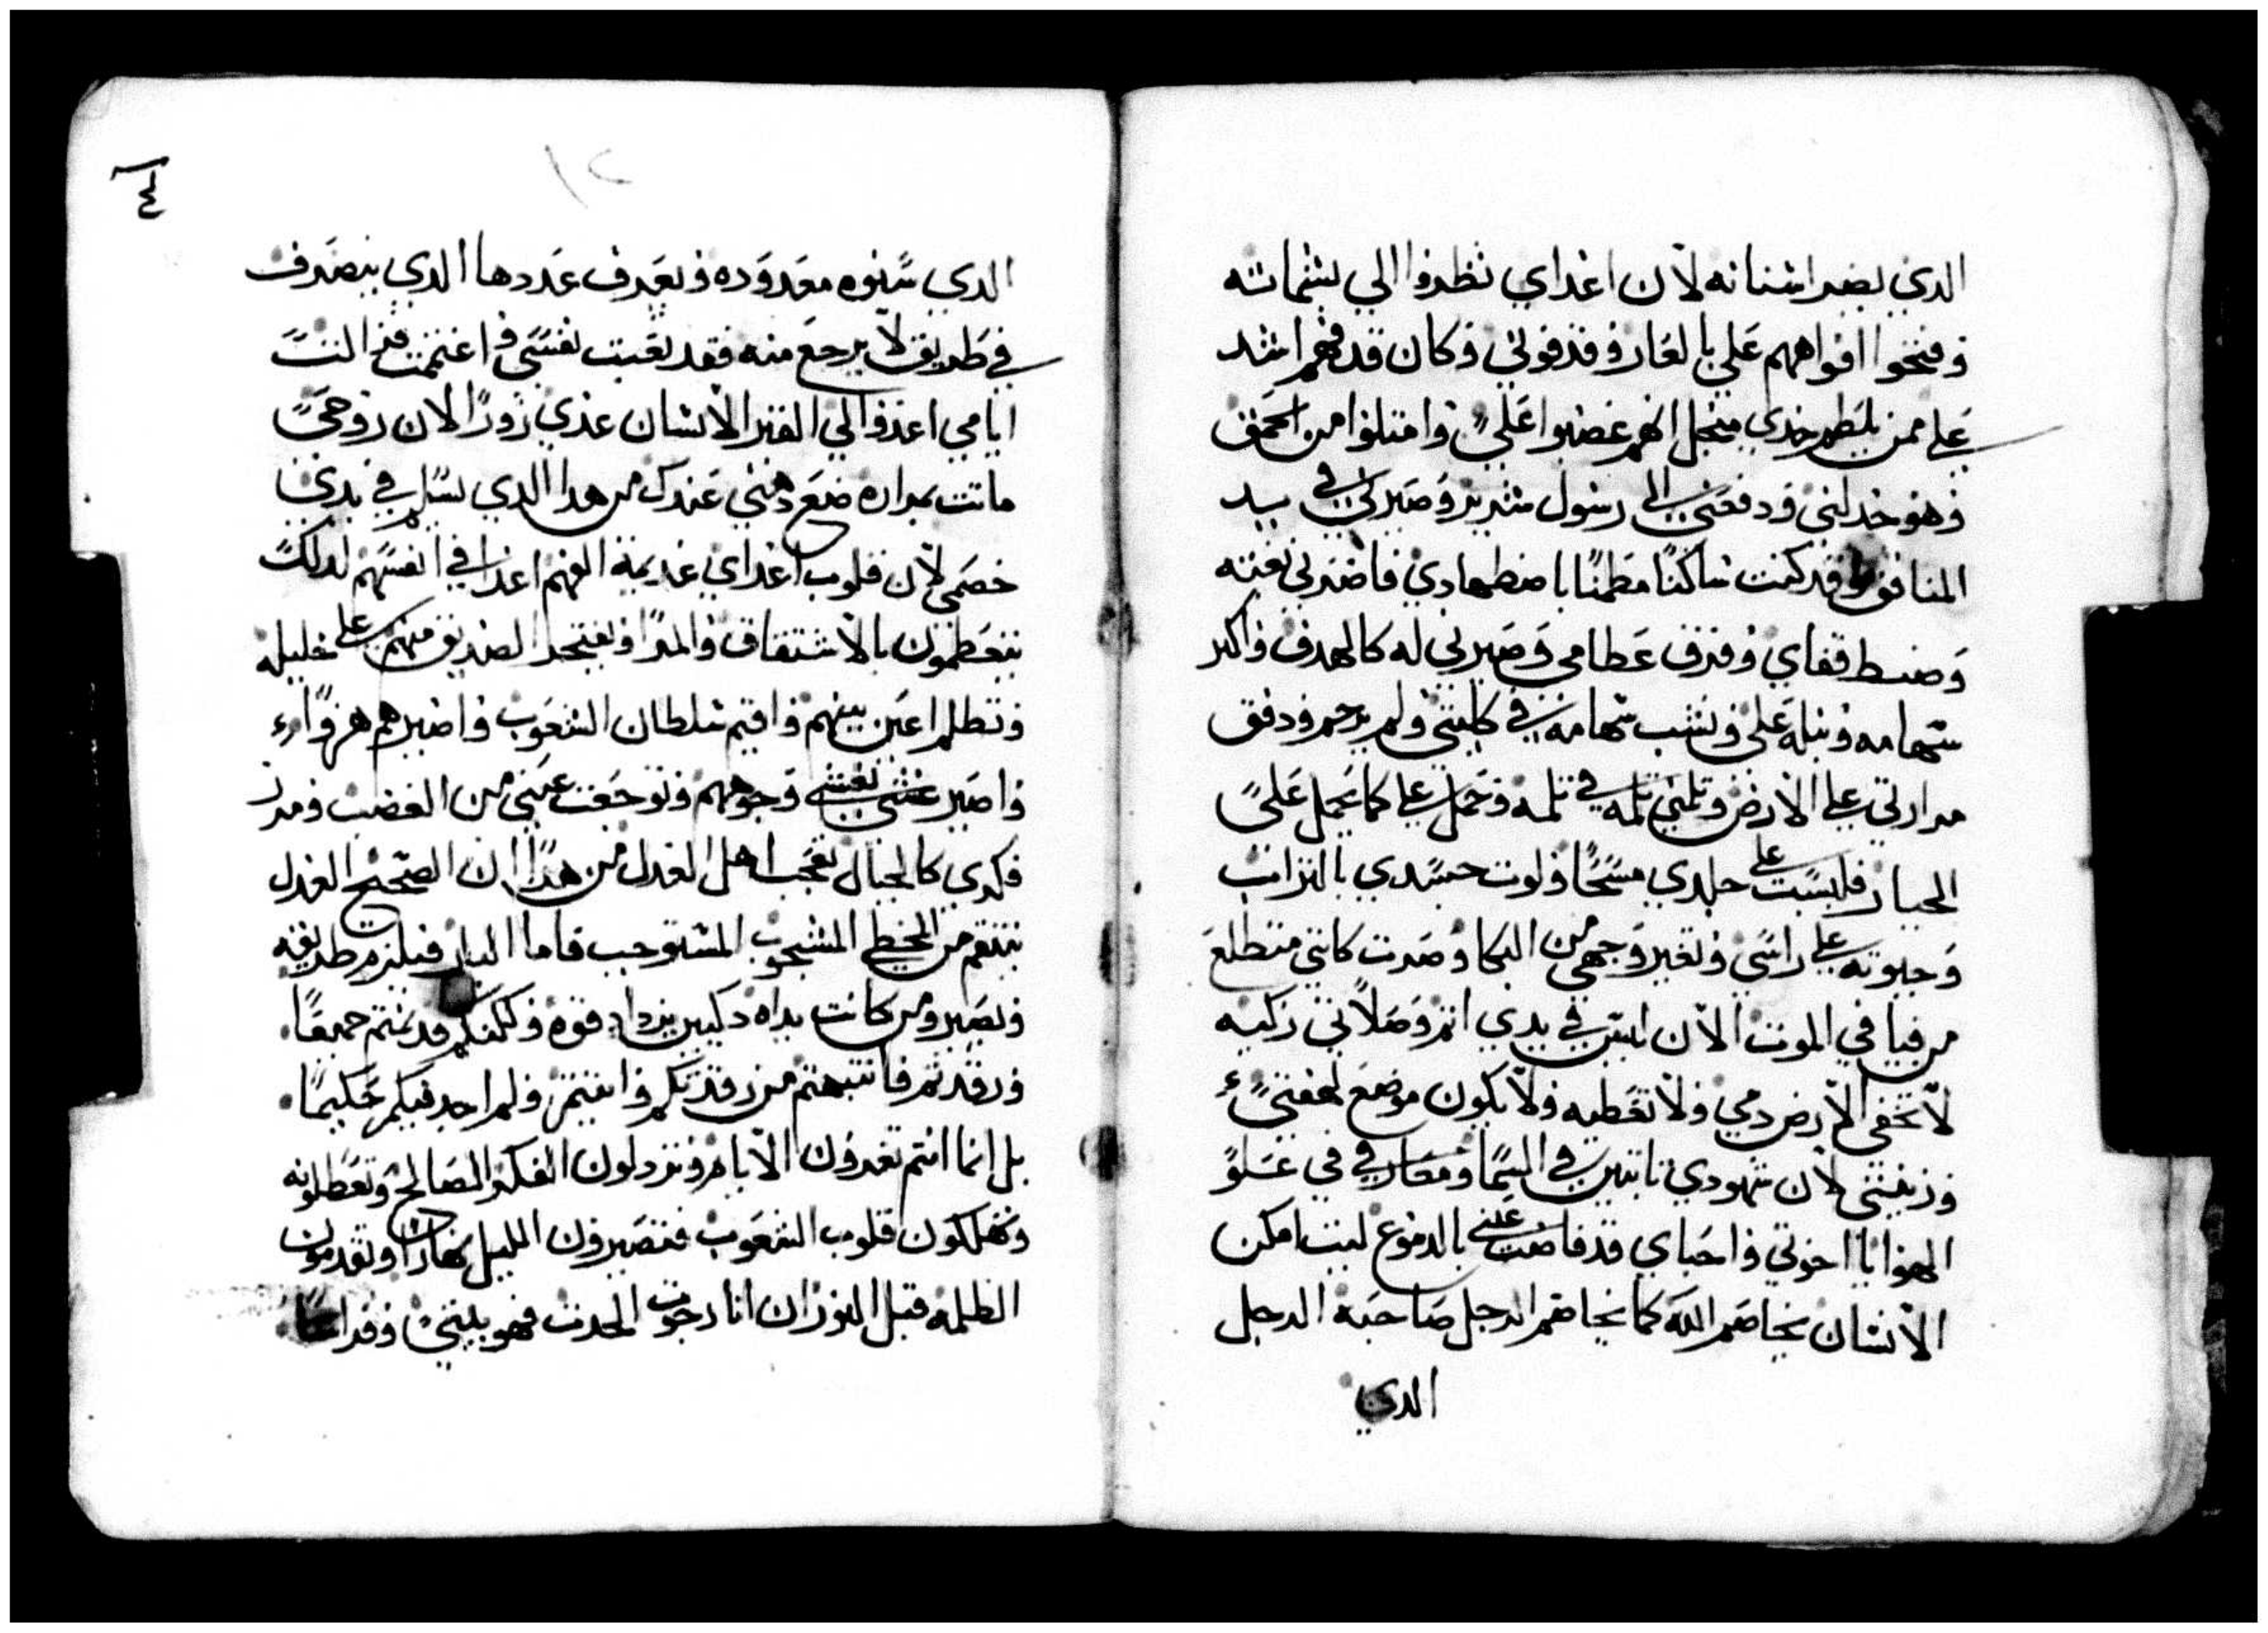 الدي يصر اسنانه لان اعداي نظروا الي بشماته
وفتحوا افواههم علي بالعار وقذفوني وكان قدفهم اشد
علي ممن يلطم خدي منجل انهم غضبوا علي وامتلوا من الحمق
وهو خدلني ودفعني الى رسول شرير وصيرني في يد
المنافق وقد كنت ساكنا مطمنا باضطهادي فاضرني بغته
وضبط قفاي وفرق عظامي وصيرني له كالهدف واكبر
سهامه ونبله علي ونشب سهامه في كليتي ولم يرحم ودفق
مرارتي علي الارض وثلمني ثلمه في ثلمه وحمل علي كما يحمل علي
الجبار فلبست على جلدي مسحا ولوت جسدي بالتراب
وحبوته على راسي وتغير وجهي من البكا وصرت كانني متطلع
من فيافي الموت الان ليس في يدي اثم وصلاتي زكيه
لا تخفي الارض دمي ولا تغطيه ولا يكون موضع لهفتي
وزعقتي لان شهودي تابتين في السما ومعارفي في علو
الهوا يا اخوتي واحباي قد فاضت عيني بالدموع ليت امكن
الانسان يخاصم الله كما يخاصم الرجل صاحبه الرجل
الدي
٤
١٢
الدي سنوه معدوده ويعرف عددها الدي ينصرف
في طريق لا يرجع منه فقد تعبت نفسي واغتمت فنا لتت
ايامي اعدوا لي القبر الانسان عدي زورا الان روحي
ماتت بمراره ضع رهني عندك من هدا الدي يسلم في يدي
خصمي لان قلوب اعداي عديمة الفهم اعدا في انفسهم لدلك
يتعظمون بالاشتقاق والمرا ويفتخر الصديق منهم على خليله
وتظلم اعين بينهم واقيم سلطان الشعوب واصيرهم هزوا
واصير تغشي وجوههم وتوجعت عيني من الغضب ومرر
فكري كالجبال تعجب اهل العدل من هدا ان الصحيح العدل
ينتقم من المخطي المشجوب المستوجب فاما البار فيلزم طريقه
ويصير ومن كانت يداه دكيين يزداد قوه وكلكم قد نمتم جميعا
ورقدتم فانتبهتم من رقدتكم واتيتم ولم اجد فيكم حكيما
بل انما انتم تعرفون الايام وتزدلون الفكر الصالح وتعطلونه
وتهلكون قلوب الشعوب فتصيرون الليل نهارا وتقدمون
الظلمه قبل النور ان انا رجوت الحدث فهو بيتي وفراشا